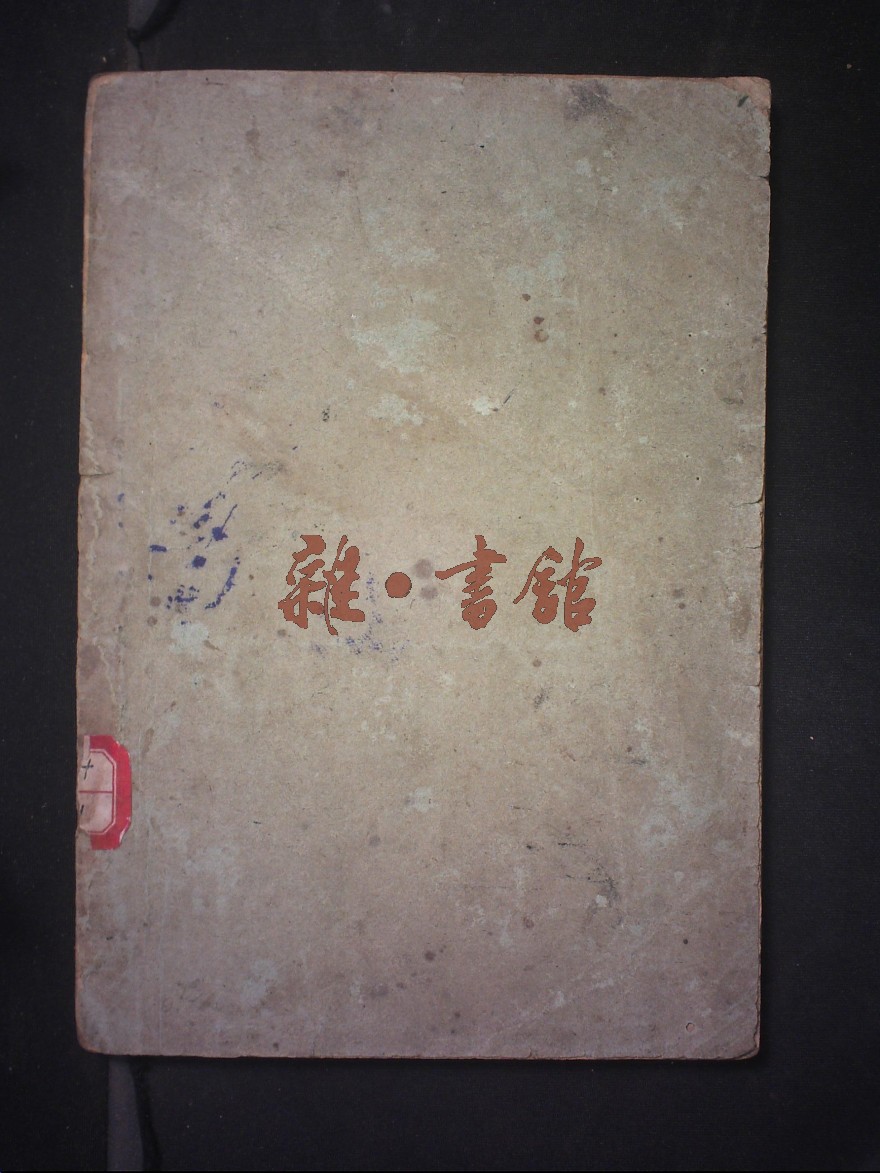 雜●書館